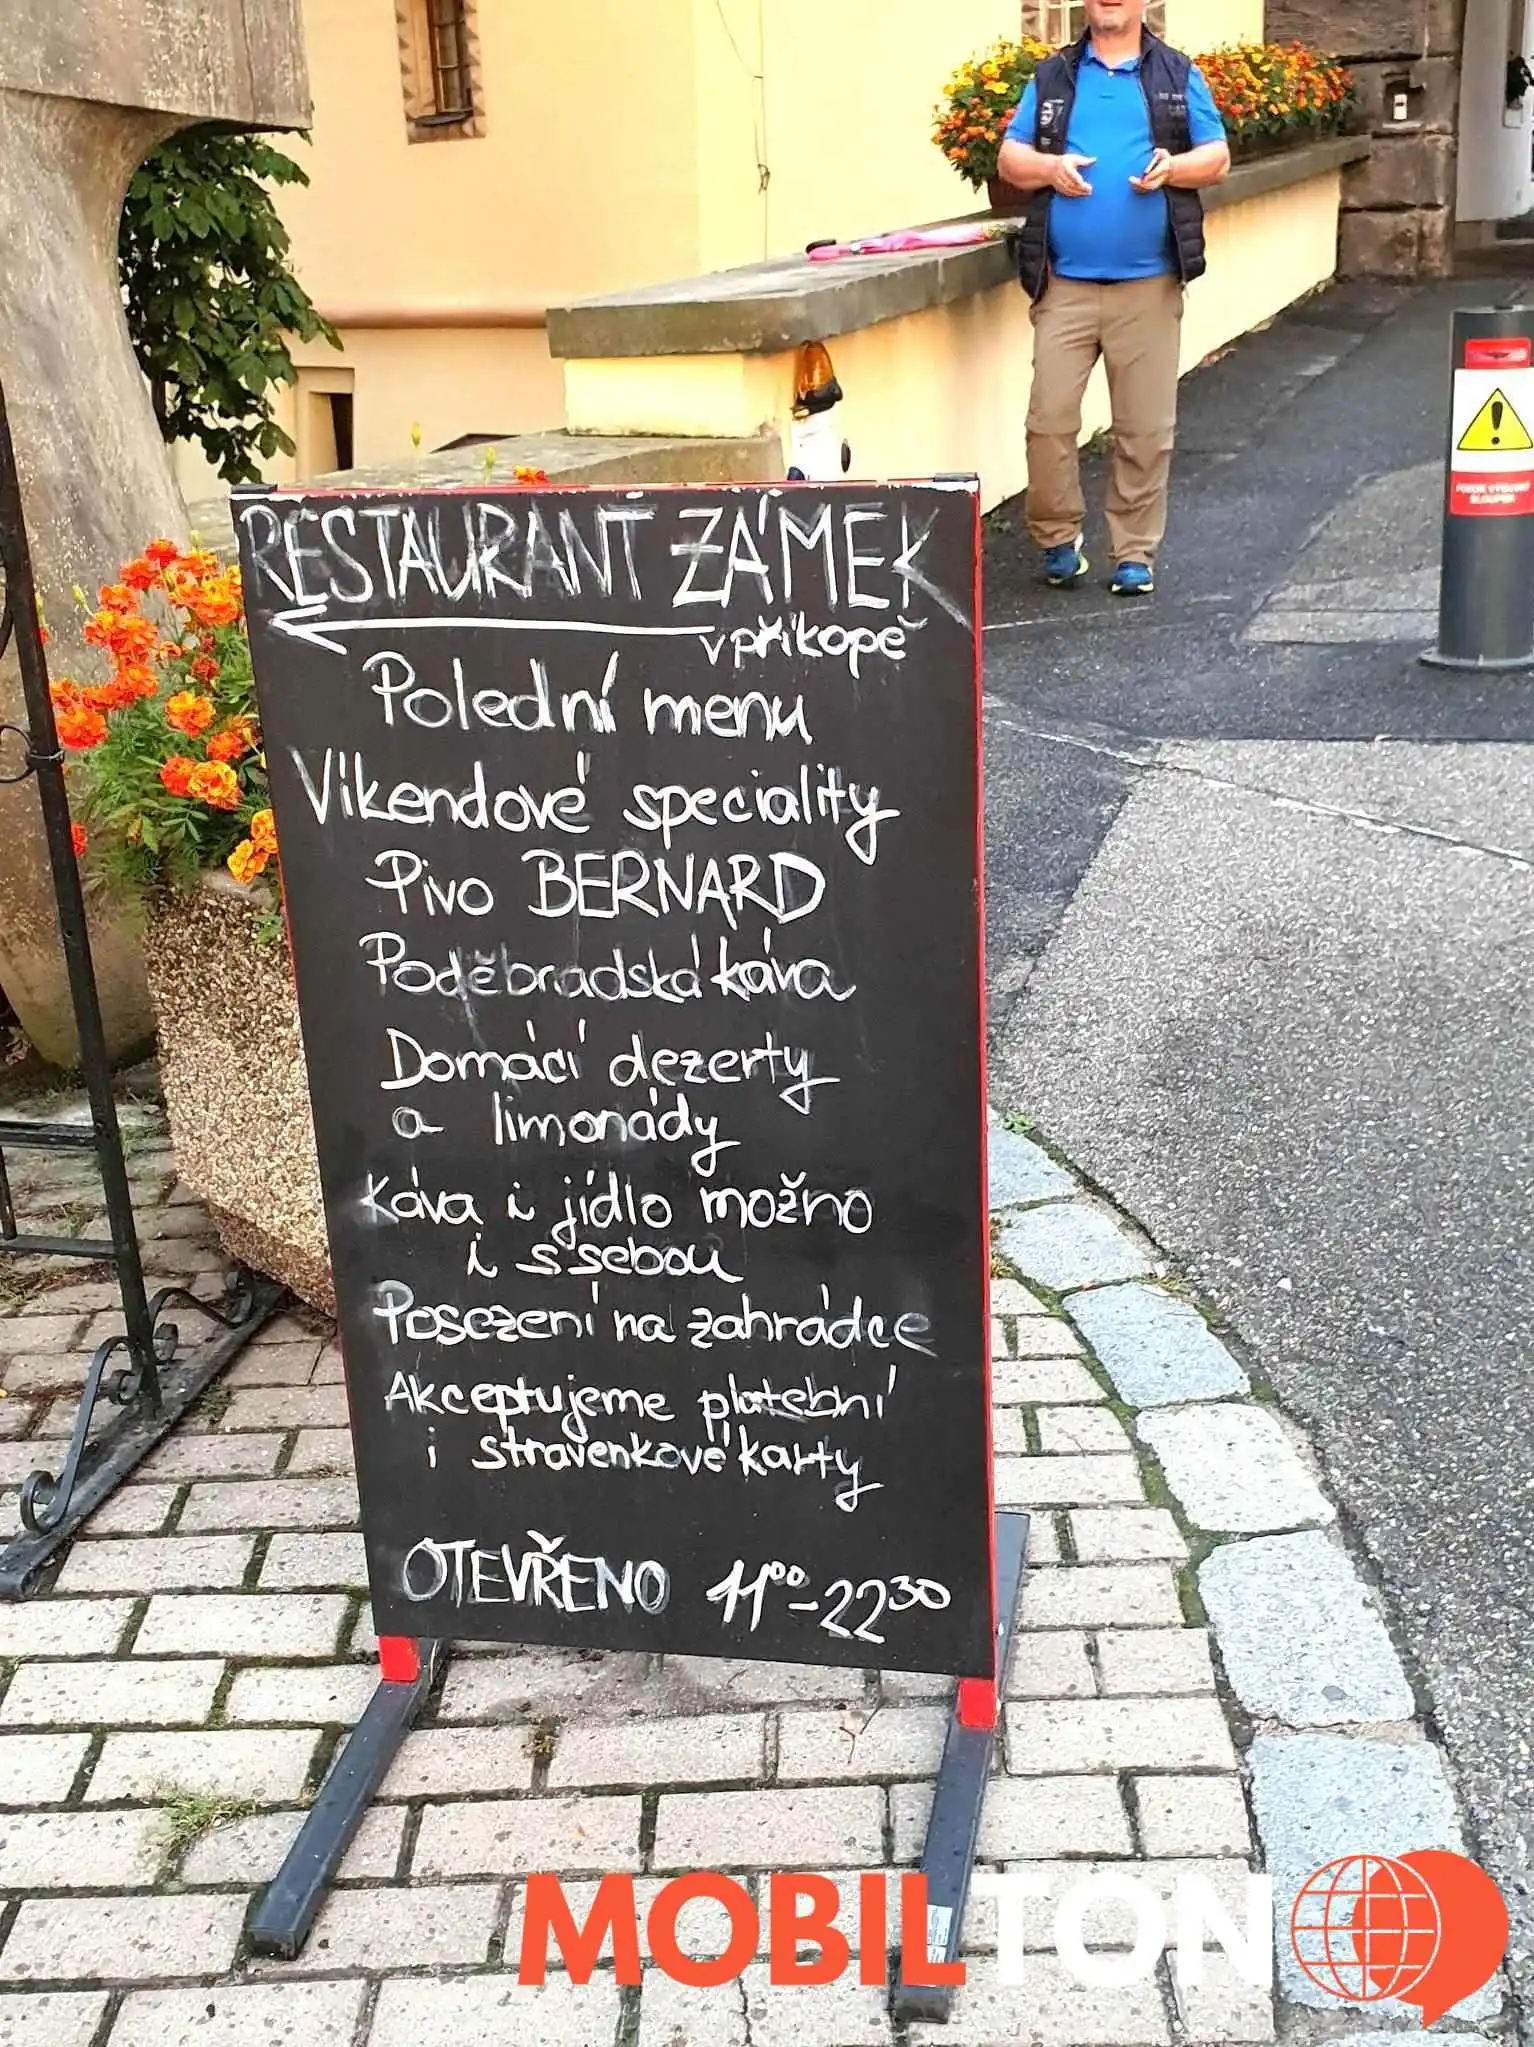 RESTAURANT ZÁMEK
v příkopě
Polední menu
Víkendové speciality
Pivo BERNARD
Poděbradská káva
Domácí dezerty
a limonády
Káva i jídlo možno
i s sebou
Posezení na zahrádce
Akceptujeme platební
i stravenkové karty
OTEVŘENO 11⁰⁰-22³⁰
MOBILTON